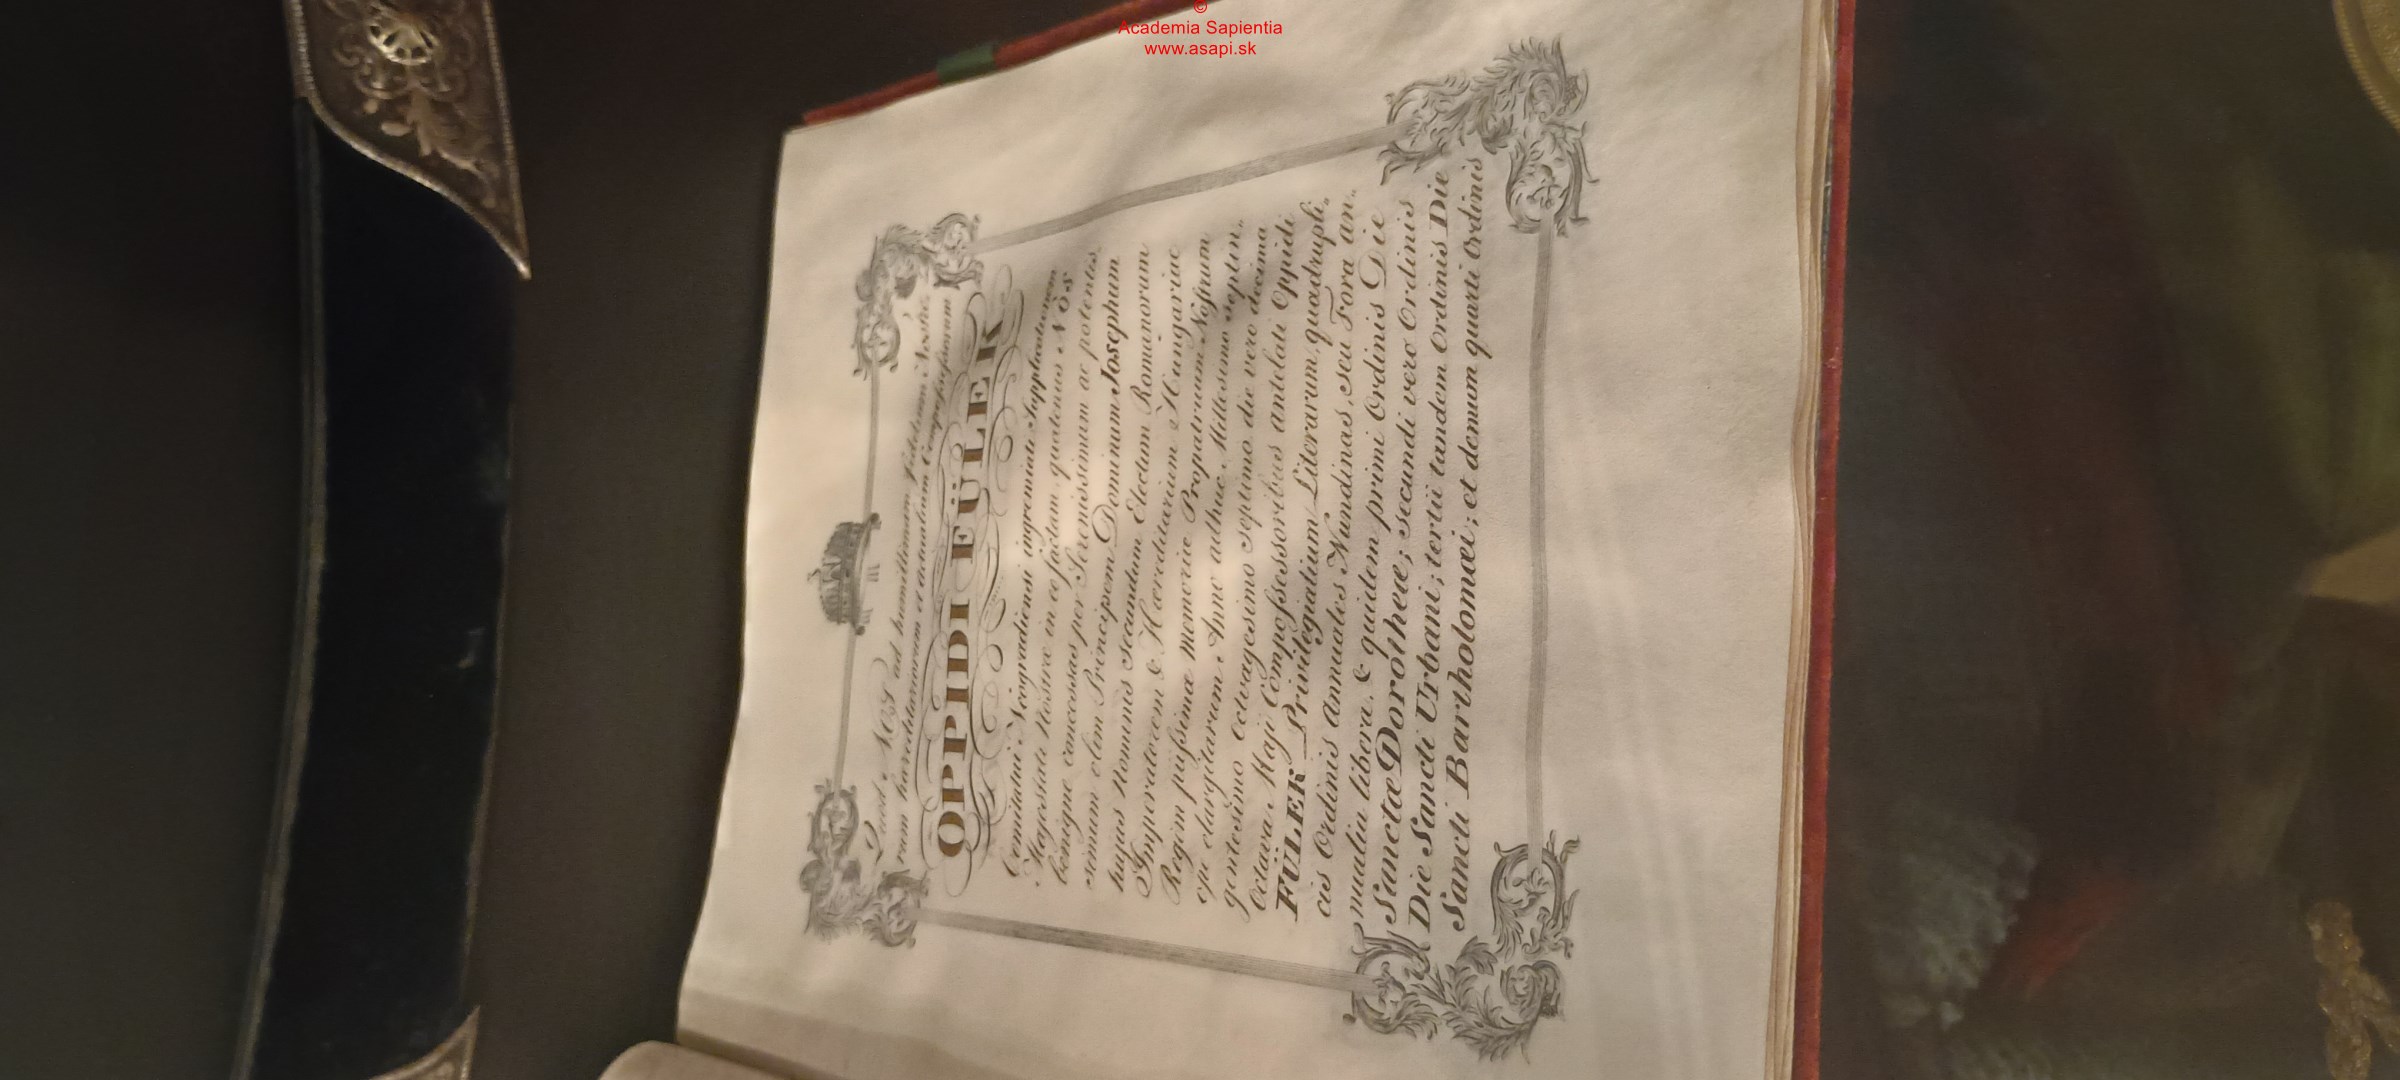 ©
Academia Sapientia
www.asapi.sk
Quod Nos ad humillimam fidelium Nostro
rum haereditariorum et actualium Compossessorum
OPPIDI FÜLEK
Comitatui Neogradiensi ingremiati Supplicationem
Majestati Nostræ in eo factam, quatenus Nos
benigne concessas per Serenissimum ac potentis
simum olim Principem Dominum Josephum
hujus Nominis Secundum Electum Romanorum
Imperatorem & Hæreditarium Hungariae
Regem piissimæ memoriæ Propatruum Nostrum
op elargitarum Anno adhuc Millesimo Septin„
gentesimo octuagesimo septimo die vero decima
octava Maji Compossessoribus antelati Oppidi
FÜLEK Privilegialium Literarum, quadrupli„
cis Ordinis annuales Nundinas, seu Fora an„
nualia libera, & quidem primi Ordinis Die
Sanctæ Dorotheæ; secundi vero Ordinis
Die Sancti Urbani; tertii tandem Ordinis Die
Sancti Bartholomæi; et demum quarti Ordinis